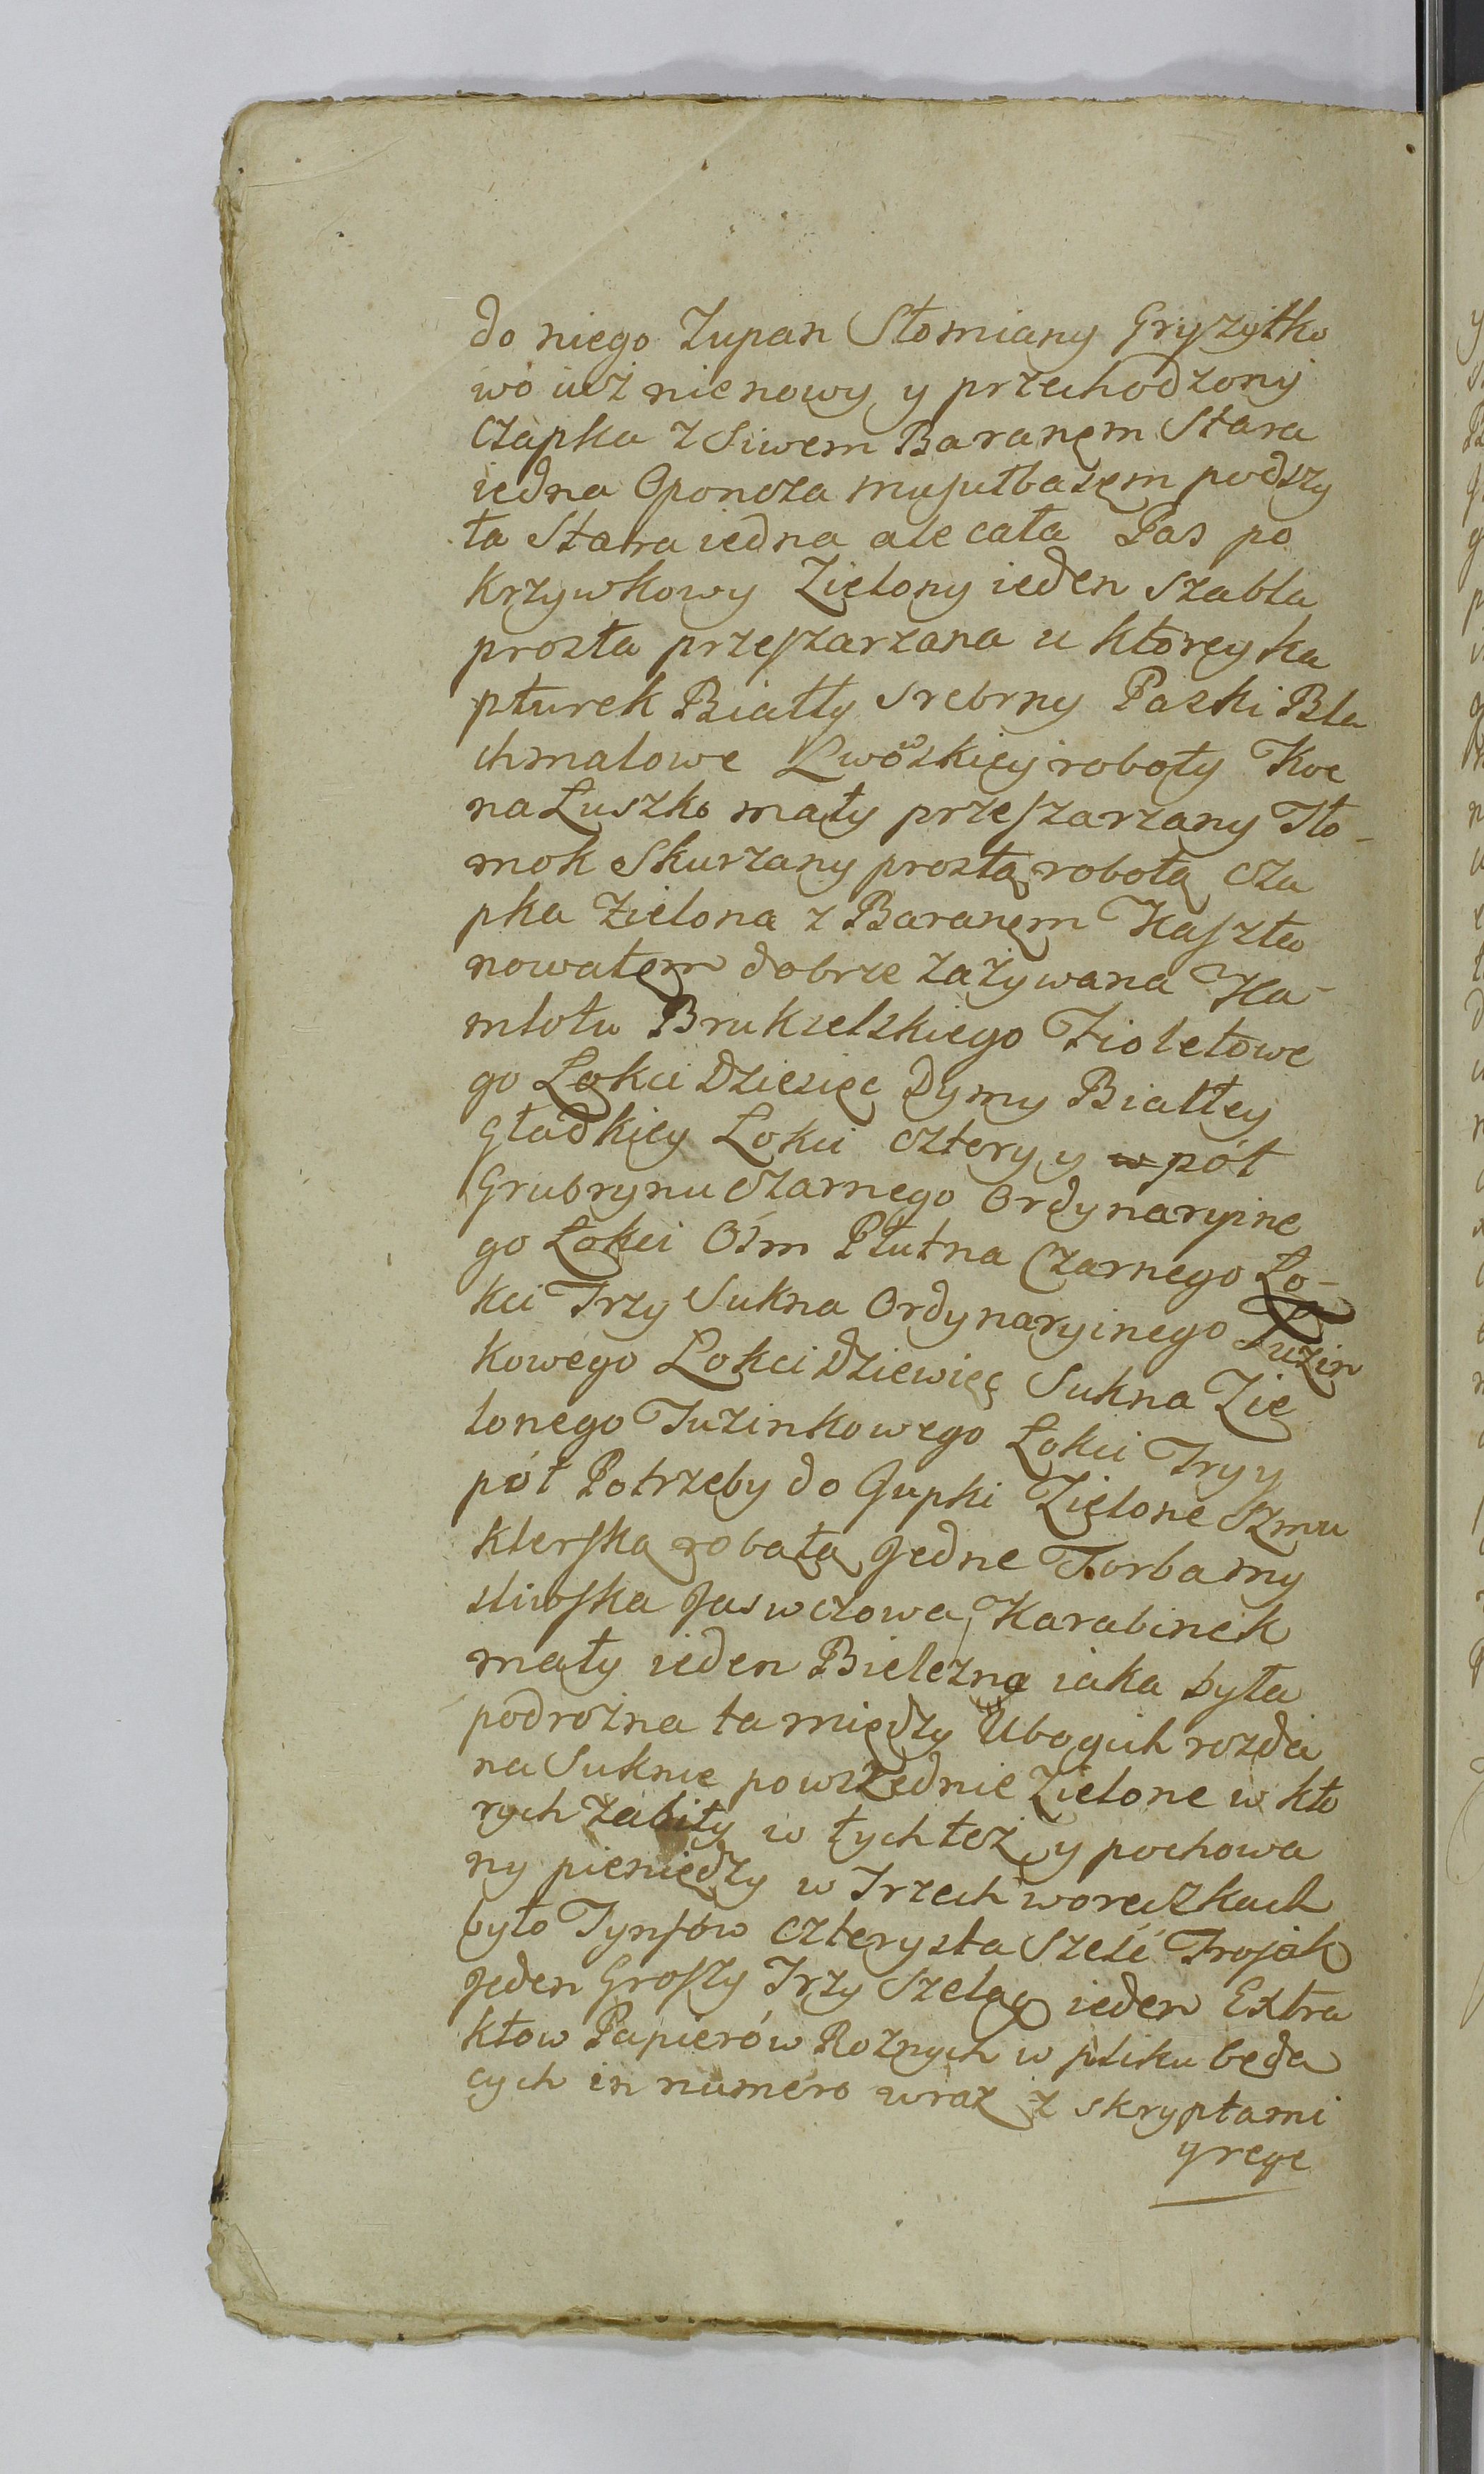 do niego Zupan Słomiany Gryszytko
wo iuż nie nowy y przechodzony
Czapka z Siwem Baranęm Stara
iedna Oponcza musułbasęm podszy
ta Stara iedna ale cała Pas po
krzywkowy Zielony ieden Szabla
prosta przeszarzana u ktorey ka
pturek Biały srebrny Paski Bla
chmalowe Lwowskiey roboty Koc
na Łuszko mały przeszarzany Tło-
mok Skurzany prostą robotą Cza
pka Zielona z Baranęm Kaszta
nowatem dobrze zażywana Ka-
mlotu Brukselskiego Fioletowe
go Łokci Dziesięc Dymy Białłey
Gładkiey Łokci cztery y w pół
Grubrynu Czarnego Ordynaryine
go Łokci Ośm Płutna Czarnego Ło-
kci Trzy Sukna Ordynaryinego Tuzin
kowego Łokci Dziewięc Sukna Zie
lonego Tuzinkowego Łokci Try y
pół Potrzeby do Jupki Zielone Szmu
klerską robotą Jedne Torba my
sliwska Jaswczowa Karabinek
mały ieden Bielezna iaka była
podrożna ta między Ubogich rozda
na Suknie powszednie Zielone w kto
rych zabity w tych też y pochowa
ny pieniędzy w Trzech woreczkach
było Tynfów czterysta Sześć Trojak
Jeden Groszy Trzy Szeląg ieden Extra
ktow Papierów Rożnych w pliku będą
cych in numero wraz z skryptami
y reje